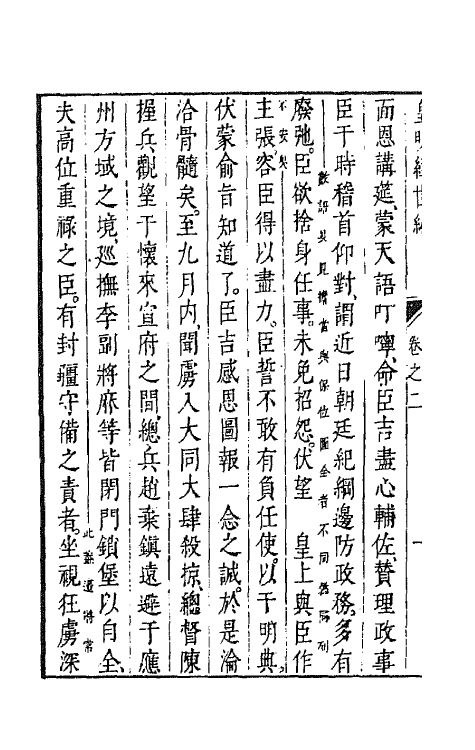 皇明經世編
卷之二
一
而恩講筵、蒙天語叮嚀、命臣吉盡心輔佐、贊理政事
臣于時稽首仰對、謂近日朝廷紀綱邊防政務、多有
數語其見擔當與保位圖全者不同
廢弛。臣欲捨身任事。未免招怨。伏望 皇上與臣作
不安矣
主張。容臣得以盡力。臣誓不敢有負任使。以干明典。
伏蒙俞旨知道了。臣吉感恩圖報一念之誠。於是淪
洽骨髓矣。至九月内、聞虜入大同大肆殺掠、總督陳
握兵觀望于懷來宣府之間、總兵趙乘鎮遠避于應
州方域之境、廵撫李副將麻等皆閉門鎖堡以自全、
夫高位重祿之臣。有封疆守備之責者。坐視狂虜深
此誰道將常